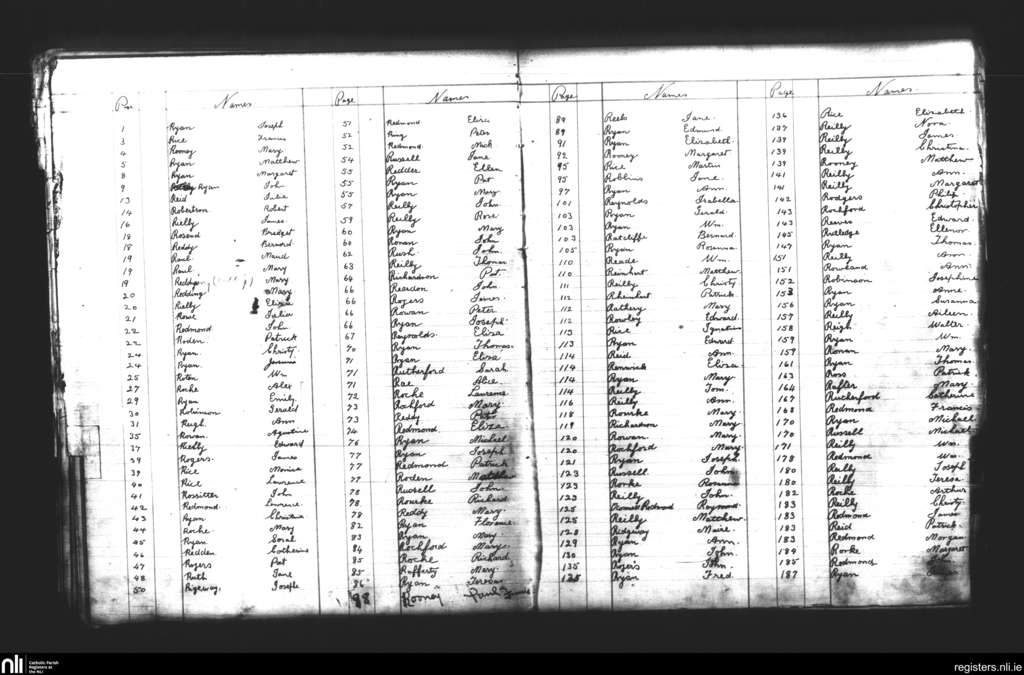 Page Names
1 Ryan Joseph
3 Rice Frances
4 Rooney Mary
5 Ryan Matthew
8 Ryan Margaret
9 Ryan Joh
13 Reid Julia
14 Robertson Robert
16 Reilly James
18 Bridget
18 Reddy Bernard
19 Raul Maud
19 Raul Mary
19 Redding Mary
20 Redding Mary
20 Reilly Eliza
21 Rowe Julia
22 Redmond John
22 Roden Patrick
24 Ryan Christy
24 Ryan
25 Wm
27 Roche Alex
29 Ryan Emily
30 Robinson Gerald
31 Ann
35 Rowan Agustine
37 Reilly Edward
39 Rogers James
39 Rice Monica
40 Rice Laurence
41 Rossiter John
42 Redmond Laurence
43 Ryan Christina
44 Roche Mary
45 Ryan
46 Redden Catherine
47 Rogers Pat
48 Ruth Jane
50 Ridgeway Joseph
Page Names
51 Redmond Eliza
52 Ring Pat
52 Redmond Mick
54 Russell Jane
55 Redden Ellen
55 Ryan Pat
55 Ryan Mary
57 Reilly John
59 Reilly Rose
60 Ryan Mary
60 Ronan John
62 Rush John
63 Reilly Thomas
64 Richardson Pat
66 Reardon John
66 Rogers James
66 Rowan Peter
66 Ryan Joseph
67 Reynolds Eliza
70 Ryan Thomas
71 Ryan Eliza
71 Rutherford Sarah
71 Rae Alice
72 Roche Laurence
73 Rochford Mary
73 Reddy Pat
74 Redmond Eliza
76 Ryan Michael
77 Ryan Joseph
77 Redmond Patrick
77 Roden Matthew
78 Russell John
78 Rourke Richard
78 Reddy Mary
82 Ryan Florence
83 Ryan Mary
84 Rochford Mary
85 Roche Richard
85 Rafferty Mary
86 Ryan Teresa
98 Rooney Paul James
Page Names
89 Reels Jane
89 Ryan Edward
91 Ryan Elizabeth
92 Rooney Margaret
95 Rice Martin
95 Robbins Jane
97 Ryan Ann
101 Reynolds Isabella
103 Ryan Gerald
103 Ryan Wm
103 Ratcliffe Bernard
105 Ryan Rosanna
110 Reade Wm
110 Reinhart Matthew
111 Reilly Christy
112 Rheinhart Patrick
112 Rattery Mary
112 Rowley Edward
113 Rice Ignatius
113 Ryan Edward
114 Reid Ann
114 Renwick Eliza
114 Ryan Mary
114 Reilly Tom
116 Reilly Ann
118 Rourke Mary
119 Richardson Mary
120 Rowan Mary
120 Rochford Mary
121 Ryan Joseph
123 Russell John
123 Rorke Rosanna
123 Reilly John
125 Redmond Raymond
125 Reilly Matthew
128 Ridgway Maire
129 Ryan Ann
130 Ryan John
135 Rogers John
135 Ryan Fred
Page Names
136 Rice Elizabeth
137 Reilly Nora
139 Reilly James
139 Reilly Christina
139 Rooney Matthew
141 Reilly Ann
141 Reilly Margaret
142 Rodgers Philip
143 Rochford Christopher
143 Reeves Edward
145 Rutledge Ellenor
147 Ryan Thomas
151 Reilly Ann
151 Rowland Ann
152 Robinson Josephine
153 Ryan Anne
156 Ryan Susanna
157 Reilly Aileen
158 Reigh Walter
159 Ryan Wm
159 Ronan Mary
161 Ryan Thomas
163 Ross Patrick
164 Rafter Mary
167 Rutherford Catherine
168 Redmond Francis
170 Ryan Michael
170 Russell Michael
171 Reilly Wm
178 Redmond Wm
180 Reilly Joseph
180 Reilly Teresa
182 Roche Arthur
183 Reilly Christy
183 Redmond James
183 Reid Patrick
183 Redmond Morgan
184 Rorke Margaret
185 Redmond
187 Ryan
nli Catholic Parish Registers at the NLI
registers.nli.ie